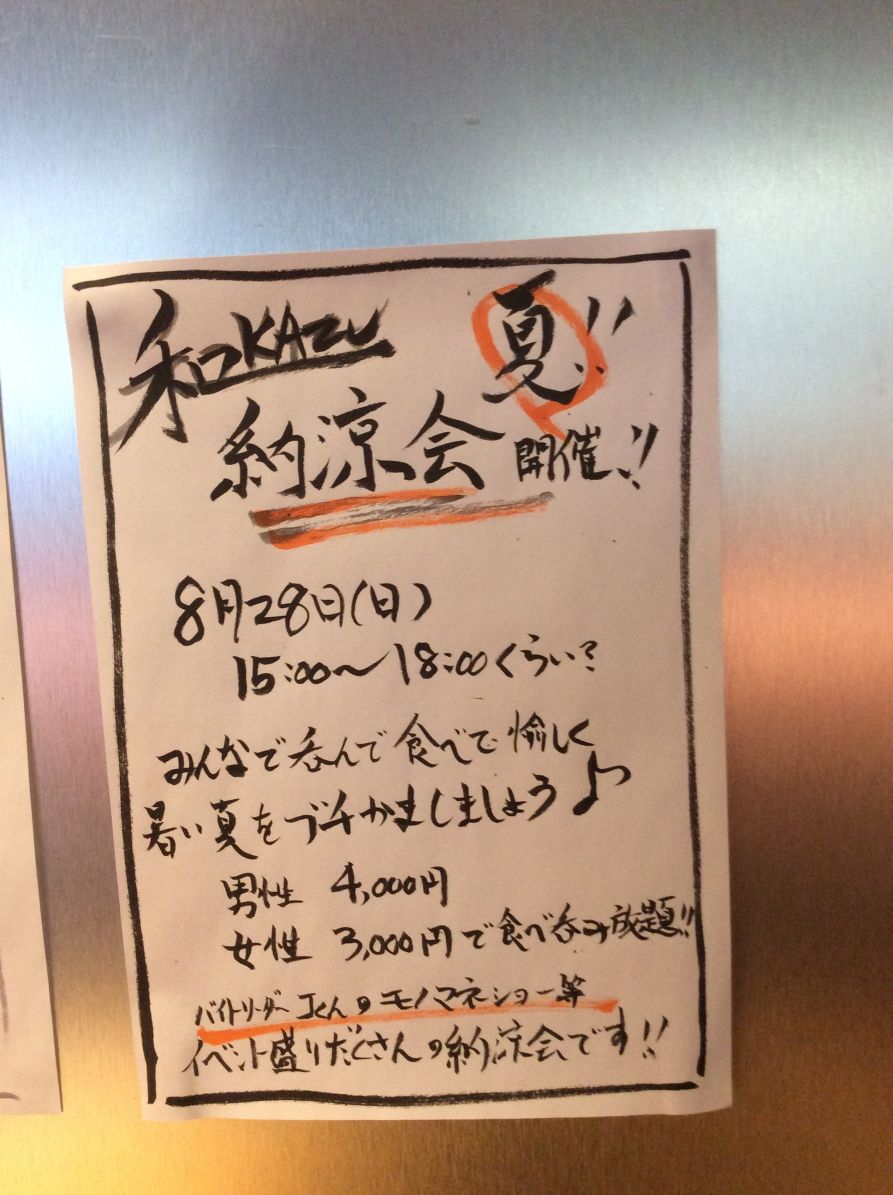 和KAZU 夏!!
納涼会 開催!!
8月28日(日)
15:00〜18:00くらい?
みんなで呑んで食べて愉しく
暑い夏をブチかましましょう♪
男性 4,000円
女性 3,000円で食べ呑み放題!!
バイトリーダーJくんのモノマネショー等
イベント盛りだくさんの納涼会です!!